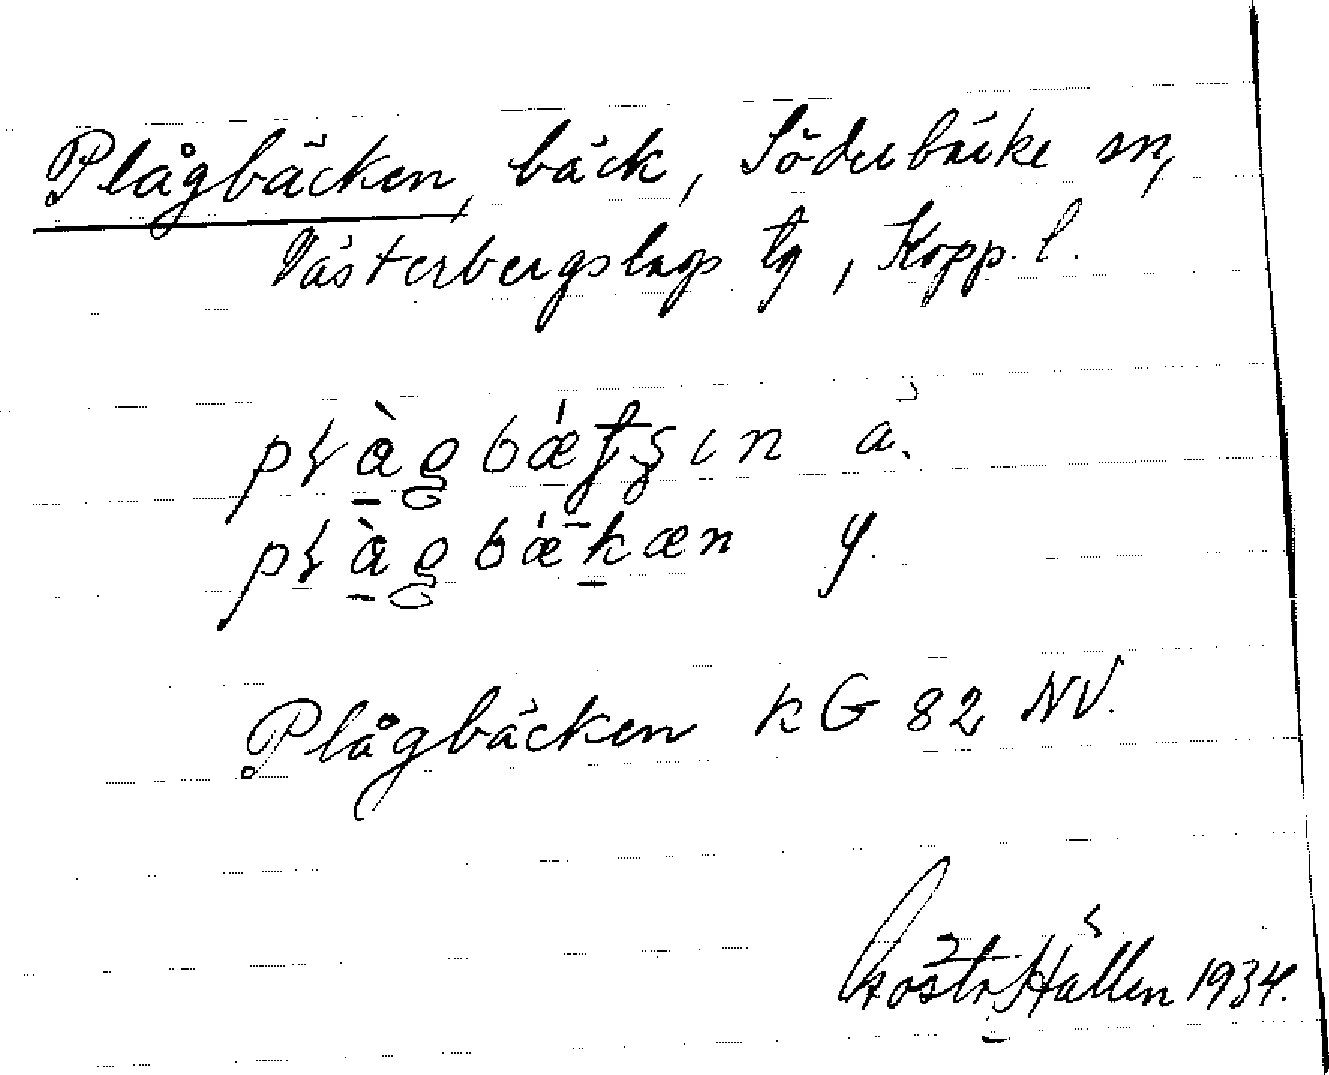 Plågbäcken, bäck, Söderbärke sn,
Västerbergslags tg, Kopp. l.
plàgbætʂın ä.
plàgbækæn y.
Plågbäcken kG 82 NV.
Gösta Hällen 1934.